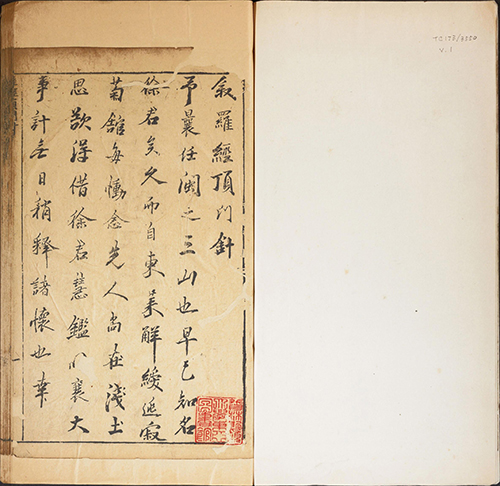 TC173/3326
V.1
叙羅經頂門針
予曩任閩之三山也早已知名
徐君矣久而自東粤解綬延寂
菊舘每慟念先人尚在淺土
思欲得借徐君慧鑑以襄大
事計無日稍釋諸懷也幸